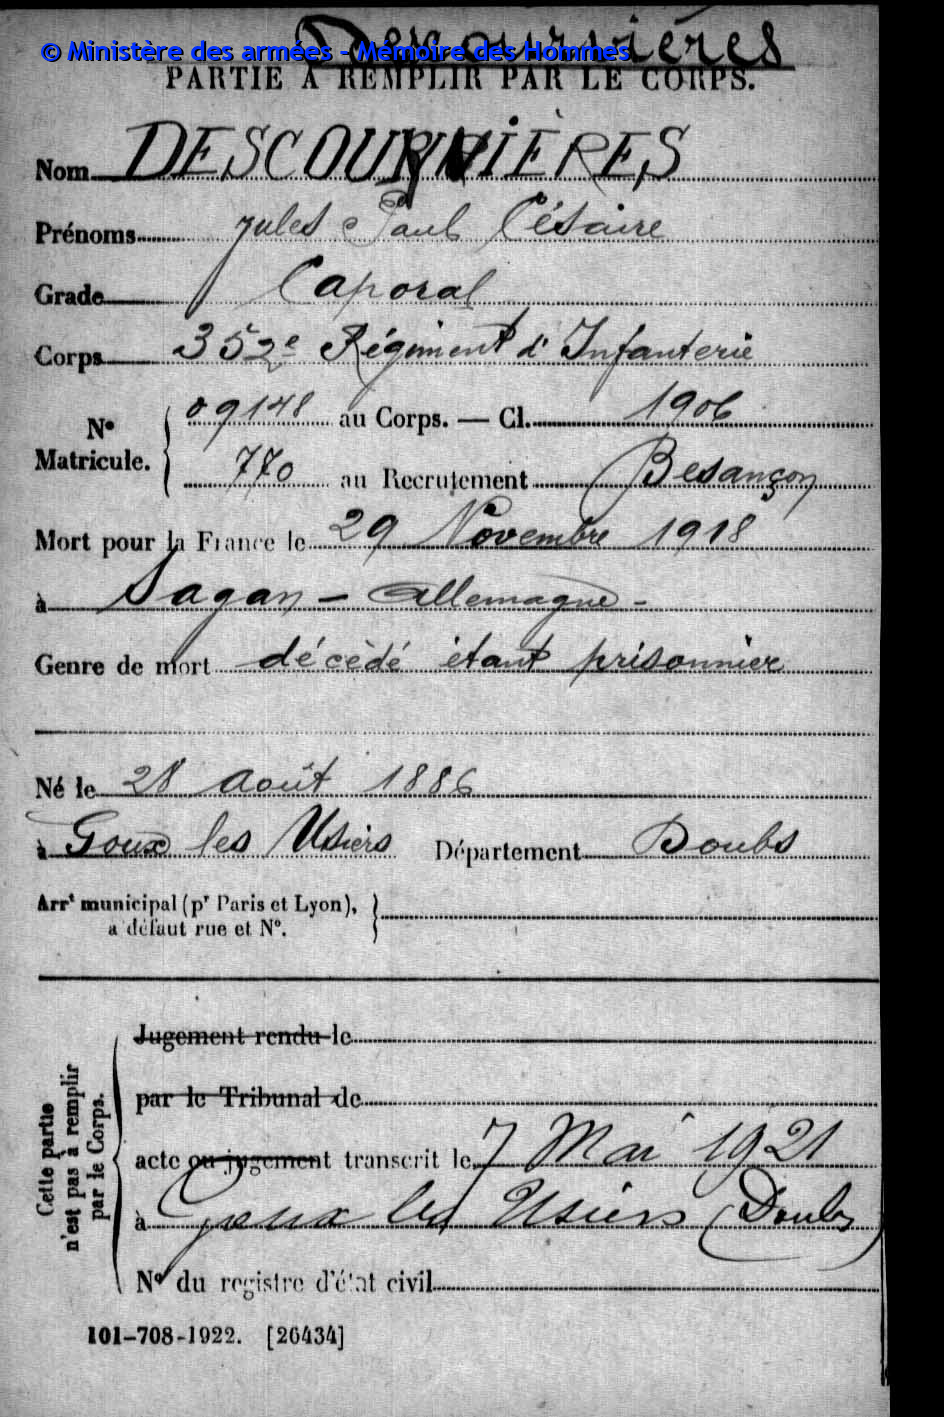 Descourvières
© Ministère des armées - Mémoire des Hommes
PARTIE À REMPLIR PAR LE CORPS.
Nom DESCOURVIÈRES
Prénoms Jules Paul Césaire
Grade Caporal
Corps 352e Régiment d'Infanterie
N° Matricule. { 09148 au Corps. — Cl. 1906
770 au Recrutement Besançon
Mort pour la France le 29 Novembre 1918
à Sagan - Allemagne -
Genre de mort décédé étant prisonnier
Né le 28 Août 1886
à Goux les Usiers Département Doubs
Arrt municipal (pr Paris et Lyon),
à défaut rue et N°.
Cette partie n'est pas à remplir par le Corps.
Jugement rendu le
par le Tribunal de
acte ou jugement transcrit le 7 Mai 1921
à Goux les Usiers (Doubs)
N° du registre d'état civil
101-708-1922. [26434]